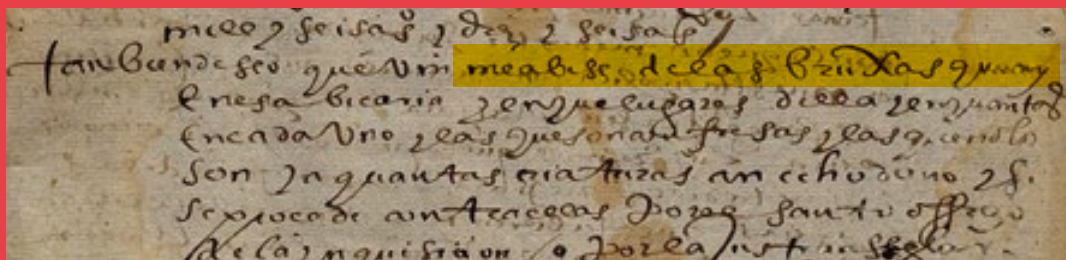 mill y seisçs y diez y seis as
tanbien deseo que vm me abise de las bruxas que ay
en esa bicaria y en que lugares della y en quantas
en cada uno y las que son confesas y las que no lo
son y a quantas criaturas an echo daño y si
se procede contra ellas por el santo officio
de la ynquisicion o por la justi seglar